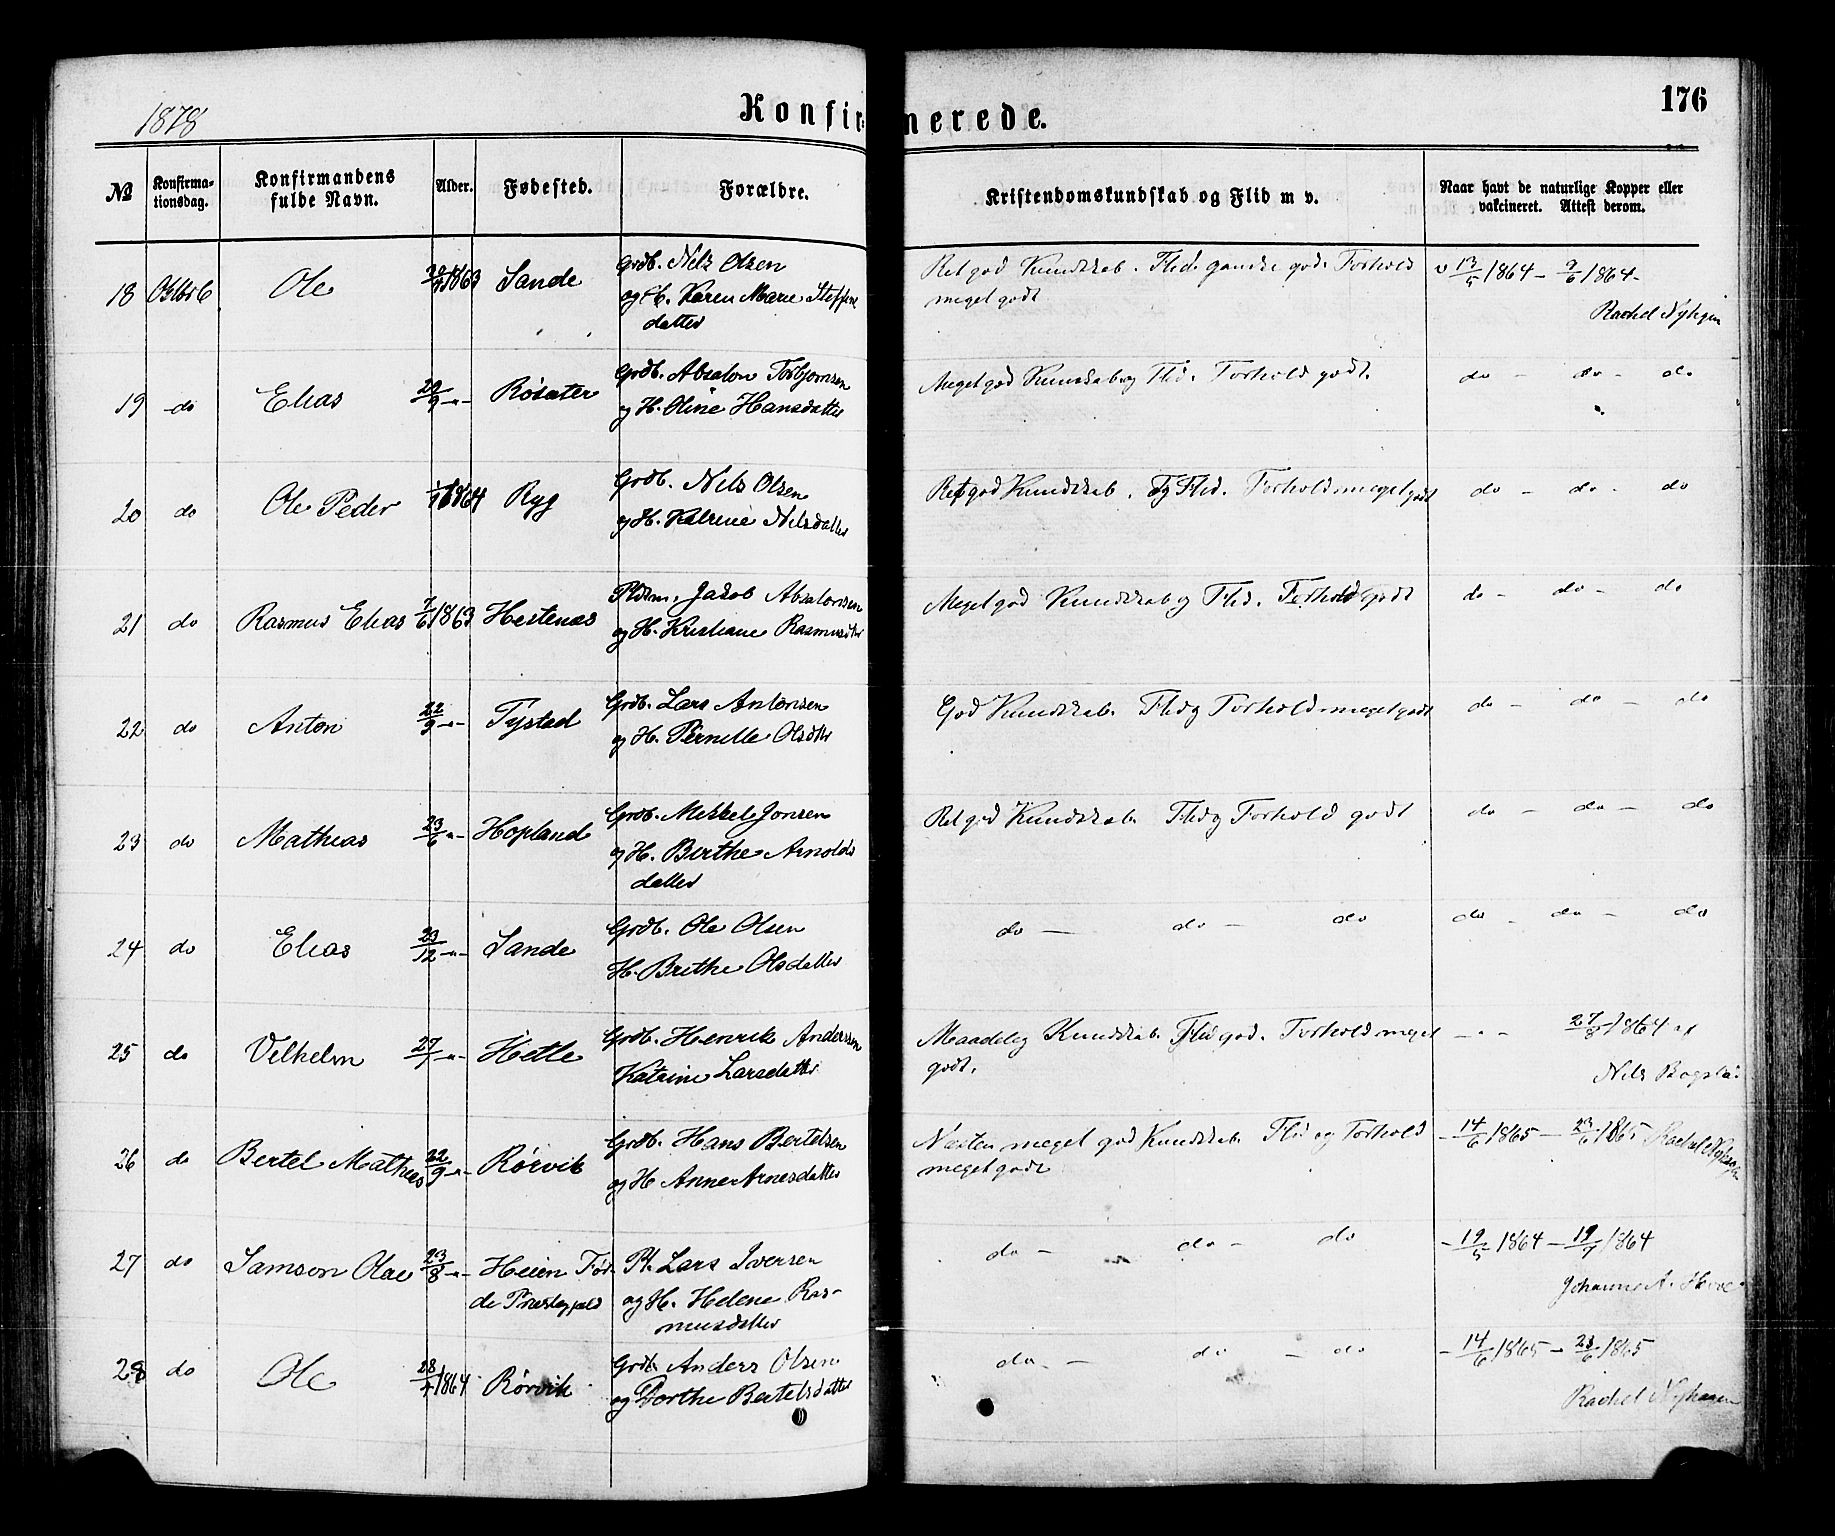 1878
Konfirmerede.
176
No
Konfirma-
tionsdag.
Konfirmandens
fulde Navn.
Alder.
Fødested.
Forældre.
Kristendomskundskab og Flid m v.
Naar havt de naturlige Kopper eller
vakcineret. Attest derom.
18 Ole 1863 Sande Grdb. Nils Olsen
og H. Karen Marie
datter
Ret god Kundskab. Flid ganske god. Forhold
meget godt
v 13/5 1864 - 9/6 1864 -
Rachel
19 do Elias 29/9 -"- Røsæter Grdb. Absalon Torbjørnsen
og H. Oline Hansdatter
Meget god Kundskab og Flid. Forhold godt.
do - do - do
20 do Ole Peder 1864 Ryg Grdb. Nils Olsen
og H. Katrine Nilsdatter
Ret god Kundskab. og Flid. Forhold meget godt
do - do - do
21 do Rasmus Elias 7/6 1863 Hestenæs Pldsm. Jakob Absalonsen
og H. Kristiane
Meget god Kundskab og Flid. Forhold godt
do - do - do
22 do Anton 22/9 -"- Tystad Grdb. Lars Antonsen
og H. Pernille Olsdtr
God Kundskab. Flid og Forhold meget godt
do - do - do
23 do Mathias 23/6 -"- Hopland Grdb. Mikkel Jonsen
og H. Berthe Arnolds
datter
Ret god Kundskab. Flid og Forhold godt
do - do - do
24 do Elias 23/12 -"- Sande Grdb. Ole Olsen
H. Brithe Olsdatter
do - do - do
do - do - do
25 do Vilhelm 27/7 -"- Hetle Grdb. Henrik Anderssen
Katrine Larsdatter
Maadelig Kundskab. Flid god. Forhold meget
godt.
- " - 27/8 1864 af
Nils
26 do Bertel Mathias 22/9 -"- Rørvik Grdb. Hans Bertelsen
og H. Anne Arnesdatter
Næsten meget god Kundskab. Flid og Forhold
meget godt
- 14/6 1865 - 23/6 1865 Rachel
27 do Samson Olai 23/8 -"- Heien Før-
de Præstegjeld
Pl. Lars Iversen
og H. Helene Ras-
musdatter
do - do - do
- 19/5 1864 - 19/7 1864
Johanne A.
28 do Ole 1864 Rørvik Grdb. Anders Olsen
og Dorthe Bertelsdatter
do - do - do
- 14/6 1865 - 23/6 1865
Rachel Nyhagen